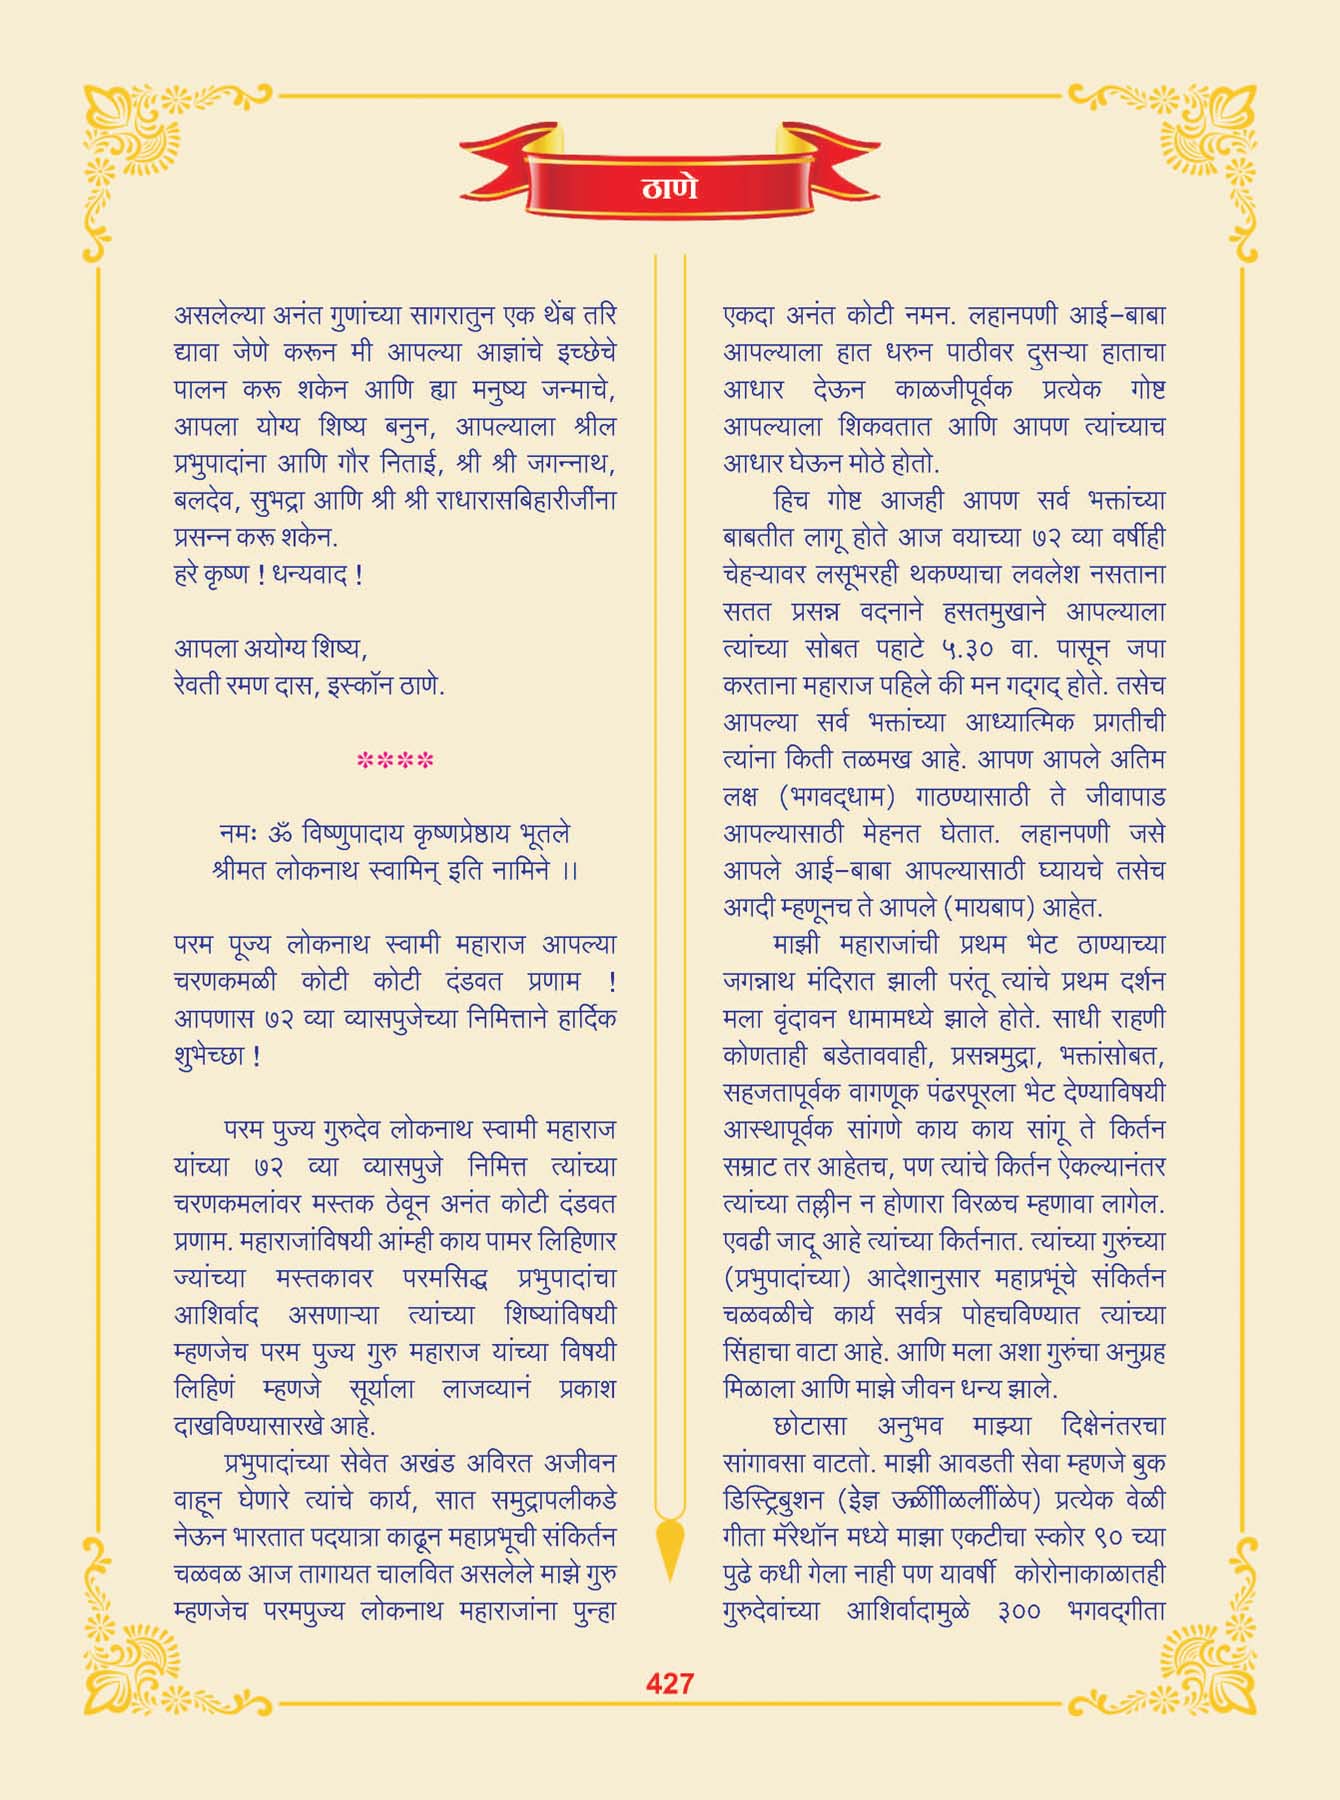 ठाणे
असलेल्या अनंत गुणांच्या सागरातुन एक थेंब तरि
द्यावा जेणे करून मी आपल्या आज्ञांचे इच्छेचे
पालन करू शकेन आणि ह्या मनुष्य जन्माचे,
आपला योग्य शिष्य बनुन, आपल्याला श्रील
प्रभुपादांना आणि गौर निताई, श्री श्री जगन्नाथ,
बलदेव, सुभद्रा आणि श्री श्री राधारासबिहारीजींना
प्रसन्न करू शकेन.
हरे कृष्ण ! धन्यवाद !
आपला अयोग्य शिष्य,
रेवती रमण दास, इस्कॉन ठाणे.
****
नमः ॐ विष्णुपादाय कृष्णप्रेष्ठाय भूतले
श्रीमत लोकनाथ स्वामिन् इति नामिने ।।
परम पूज्य लोकनाथ स्वामी महाराज आपल्या
चरणकमळी कोटी कोटी दंडवत प्रणाम !
आपणास ७२ व्या व्यासपुजेच्या निमित्ताने हार्दिक
शुभेच्छा !
परम पुज्य गुरुदेव लोकनाथ स्वामी महाराज
यांच्या ७२ व्या व्यासपुजे निमित्त त्यांच्या
चरणकमलांवर मस्तक ठेवून अनंत कोटी दंडवत
प्रणाम. महाराजांविषयी आंम्ही काय पामर लिहिणार
ज्यांच्या मस्तकावर परमसिद्ध प्रभुपादांचा
आशिर्वाद असणाऱ्या त्यांच्या शिष्यांविषयी
म्हणजेच परम पुज्य गुरु महाराज यांच्या विषयी
लिहिणं म्हणजे सूर्याला लाजव्यानं प्रकाश
दाखविण्यासारखे आहे.
प्रभुपादांच्या सेवेत अखंड अविरत अजीवन
वाहून घेणारे त्यांचे कार्य, सात समुद्रापलीकडे
नेऊन भारतात पदयात्रा काढून महाप्रभूची संकिर्तन
चळवळ आज तागायत चालवित असलेले माझे गुरु
म्हणजेच परमपुज्य लोकनाथ महाराजांना पुन्हा
एकदा अनंत कोटी नमन. लहानपणी आई-बाबा
आपल्याला हात धरुन पाठीवर दुसऱ्या हाताचा
आधार देऊन काळजीपूर्वक प्रत्येक गोष्ट
आपल्याला शिकवतात आणि आपण त्यांच्याच
आधार घेऊन मोठे होतो.
हिच गोष्ट आजही आपण सर्व भक्तांच्या
बाबतीत लागू होते आज वयाच्या ७२ व्या वर्षीही
चेहऱ्यावर लसूभरही थकण्याचा लवलेश नसताना
सतत प्रसन्न वदनाने हसतमुखाने आपल्याला
त्यांच्या सोबत पहाटे ५.३० वा. पासून जपा
करताना महाराज पहिले की मन गद्‌गद् होते. तसेच
आपल्या सर्व भक्तांच्या आध्यात्मिक प्रगतीची
त्यांना किती तळमख आहे. आपण आपले अतिम
लक्ष (भगवद्‌धाम) गाठण्यासाठी ते जीवापाड
आपल्यासाठी मेहनत घेतात. लहानपणी जसे
आपले आई-बाबा आपल्यासाठी घ्यायचे तसेच
अगदी म्हणूनच ते आपले (मायबाप) आहेत.
माझी महाराजांची प्रथम भेट ठाण्याच्या
जगन्नाथ मंदिरात झाली परंतू त्यांचे प्रथम दर्शन
मला वृंदावन धामामध्ये झाले होते. साधी राहणी
कोणताही बडेताववाही, प्रसन्नमुद्रा, भक्तांसोबत,
सहजतापूर्वक वागणूक पंढरपूरला भेट देण्याविषयी
आस्थापूर्वक सांगणे काय काय सांगू ते किर्तन
सम्राट तर आहेतच, पण त्यांचे किर्तन ऐकल्यानंतर
त्यांच्या तल्लीन न होणारा विरळच म्हणावा लागेल.
एवढी जादू आहे त्यांच्या किर्तनात. त्यांच्या गुरुंच्या
(प्रभुपादांच्या) आदेशानुसार महाप्रभूंचे संकिर्तन
चळवळीचे कार्य सर्वत्र पोहचविण्यात त्यांच्या
सिंहाचा वाटा आहे. आणि मला अशा गुरुंचा अनुग्रह
मिळाला आणि माझे जीवन धन्य झाले.
छोटासा अनुभव माझ्या दिक्षेनंतरचा
सांगावसा वाटतो. माझी आवडती सेवा म्हणजे बुक
डिस्ट्रिबुशन प्रत्येक वेळी
गीता मॅरेथॉन मध्ये माझा एकटीचा स्कोर ९० च्या
पुढे कधी गेला नाही पण यावर्षी कोरोनाकाळातही
गुरुदेवांच्या आशिर्वादामुळे ३०० भगवद्‌गीता
427